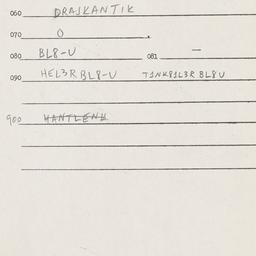 060 DRAJKANTIK
070 0 .
080 BL8-U 081 —
090 HEL3RBL8-U TJNK8JL3R BL8U
900 HANTLENK